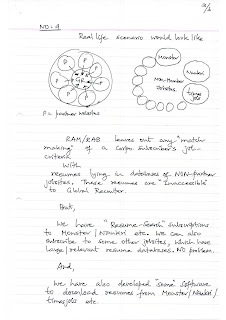 9/1
NO: 9
Real life scenario would look like
P
P
P
P
P
P
P
GR
Monster
Naukri
times jobs
Non-Member Jobsites
P = partner websites
RAM/RAB leaves out any "match-
making" of a corpo. subscriber's job-
criteria
WITH
resumes lying in databases of NON-partner
jobsites. These resumes are "inaccessible"
to Global Recruiter.
But,
We have "Resume-Search" subscriptions
to Monster / Naukri etc. We can also
subscribe to some other jobsites, which have
large/relevant resume databases. NO problem.
And,
We have also developed "some" software
to download resumes from Monster/Naukri/
timesjobs etc.